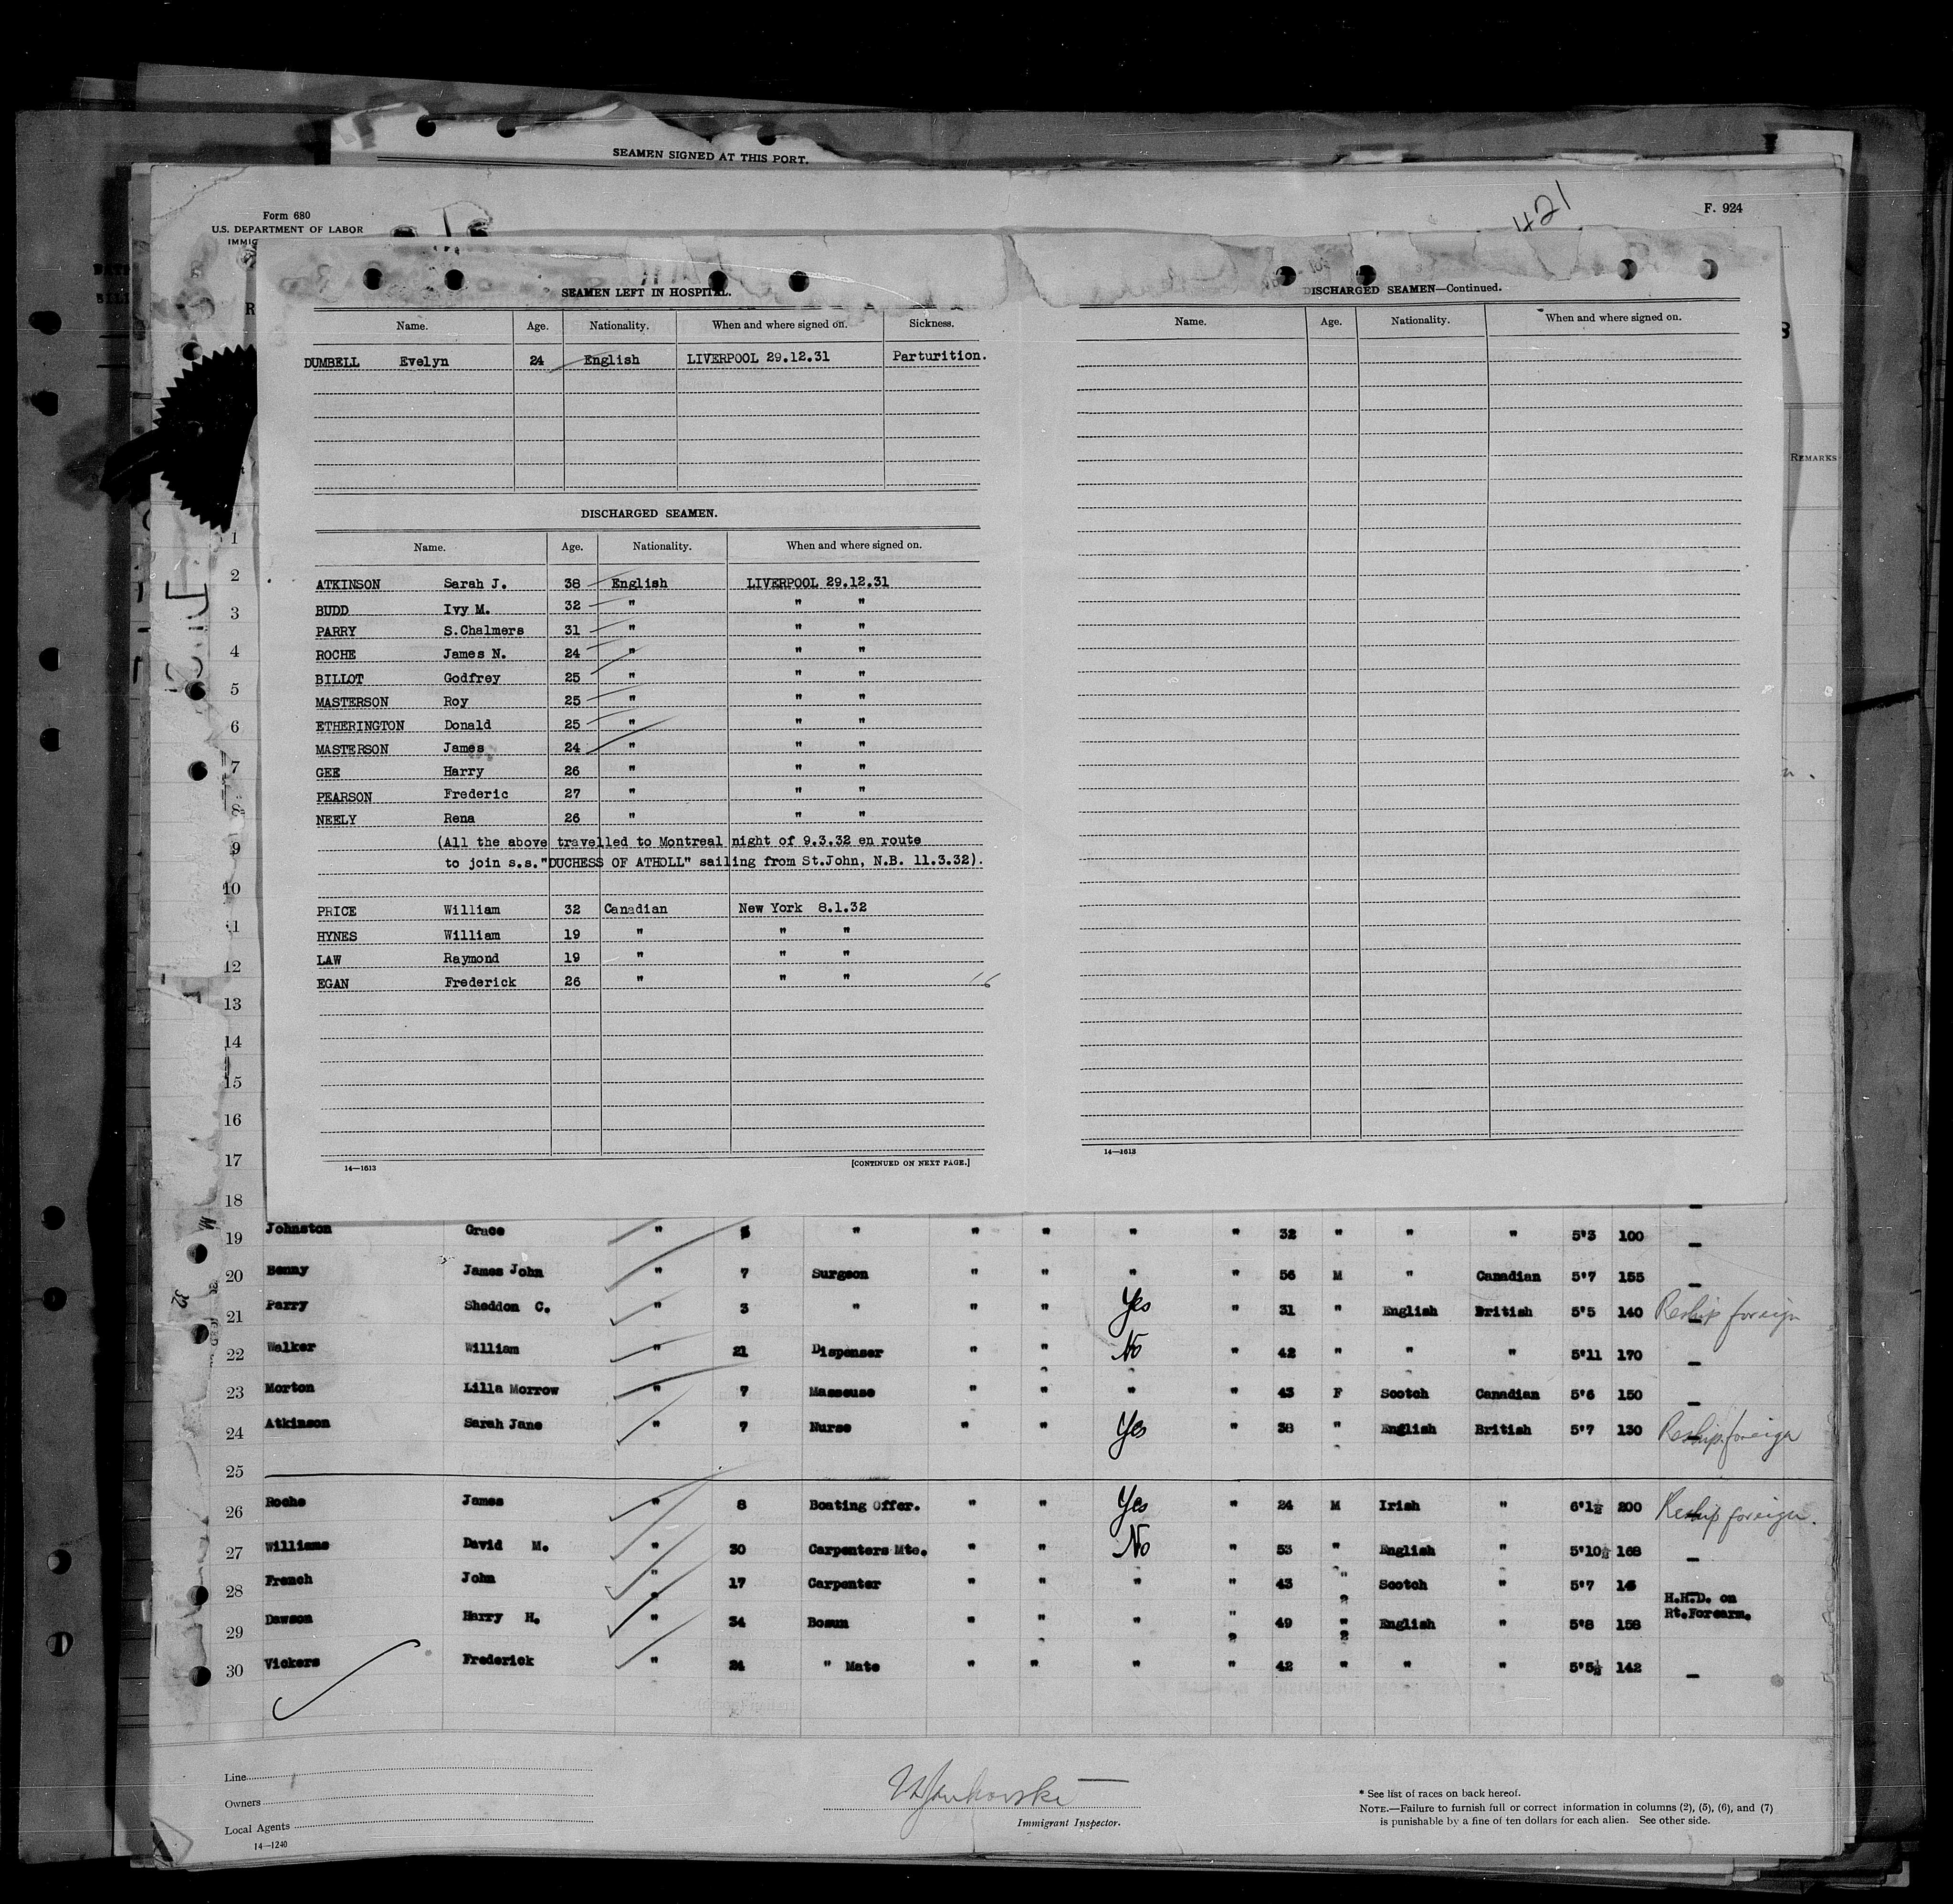 SEAMEN SIGNED AT THIS PORT.
Form 680
U.S. DEPARTMENT OF LABOR
IMMIG
421
F. 924
SEAMEN LEFT IN HOSPITAL.
Name. Age. Nationality. When and where signed on. Sickness.
DUMBELL Evelyn 24 English LIVERPOOL 29.12.31 Parturition.
DISCHARGED SEAMEN.
Name. Age. Nationality. When and where signed on.
ATKINSON Sarah J. 38 English LIVERPOOL 29.12.31
BUDD Ivy M. 32 " " "
PARRY S.Chalmers 31 " " "
ROCHE James N. 24 " " "
BILLOT Godfrey 25 " " "
MASTERSON Roy 25 " " "
ETHERINGTON Donald 25 " " "
MASTERSON James 24 " " "
GEE Harry 26 " " "
PEARSON Frederic 27 " " "
NEELY Rena 26 " " "
(All the above travelled to Montreal night of 9.3.32 en route
to join s.s."DUCHESS OF ATHOLL" sailing from St.John, N.B. 11.3.32).
PRICE William 32 Canadian New York 8.1.32
HYNES William 19 " " "
LAW Raymond 19 " " "
EGAN Frederick 26 " " "
14—1613 [CONTINUED ON NEXT PAGE.]
DISCHARGED SEAMEN—Continued.
Name. Age. Nationality. When and where signed on.
14—1613
REMARKS
1
2
3
4
5
6
7
8
9
10
11
12
13
14
15
16
17
18
19 Johnston Grace " " " " " " 32 " " " 5'3 100 –
20 Benny James John " 7 Surgeon " " " " 56 M " Canadian 5'7 155 –
21 Parry Sheddon C. " 3 " " " Yes " 31 " English British 5'5 140 Reship foreign
22 Walker William " 21 Dispenser " " No " 42 " " " 5'11 170 –
23 Morton Lilla Morrow " 7 Masseuse " " " " 43 F Scotch Canadian 5'6 150 –
24 Atkinson Sarah Jane " 7 Nurse " " Yes " 38 " English British 5'7 130 Reship foreign
25
26 Roche James " 8 Boating Offer. " " Yes " 24 M Irish " 6'1½ 200 Reship foreign.
27 Williams David M. " 30 Carpenters Mte. " " No " 53 " English " 5'10½ 168 –
28 French John " 17 Carpenter " " " " 43 " Scotch " 5'7 –
29 Dawson Harry H. " 34 Bosun " " " " 49 " English " 5'8 158 H.H.D. on Rt.Forearm.
30 Vickers Frederick " 24 " Mate " " " " 42 " " " 5'5½ 142 –
Line
Owners
Local Agents
14—1240
Immigrant Inspector.
* See list of races on back hereof.
NOTE.—Failure to furnish full or correct information in columns (2), (5), (6), and (7)
is punishable by a fine of ten dollars for each alien. See other side.